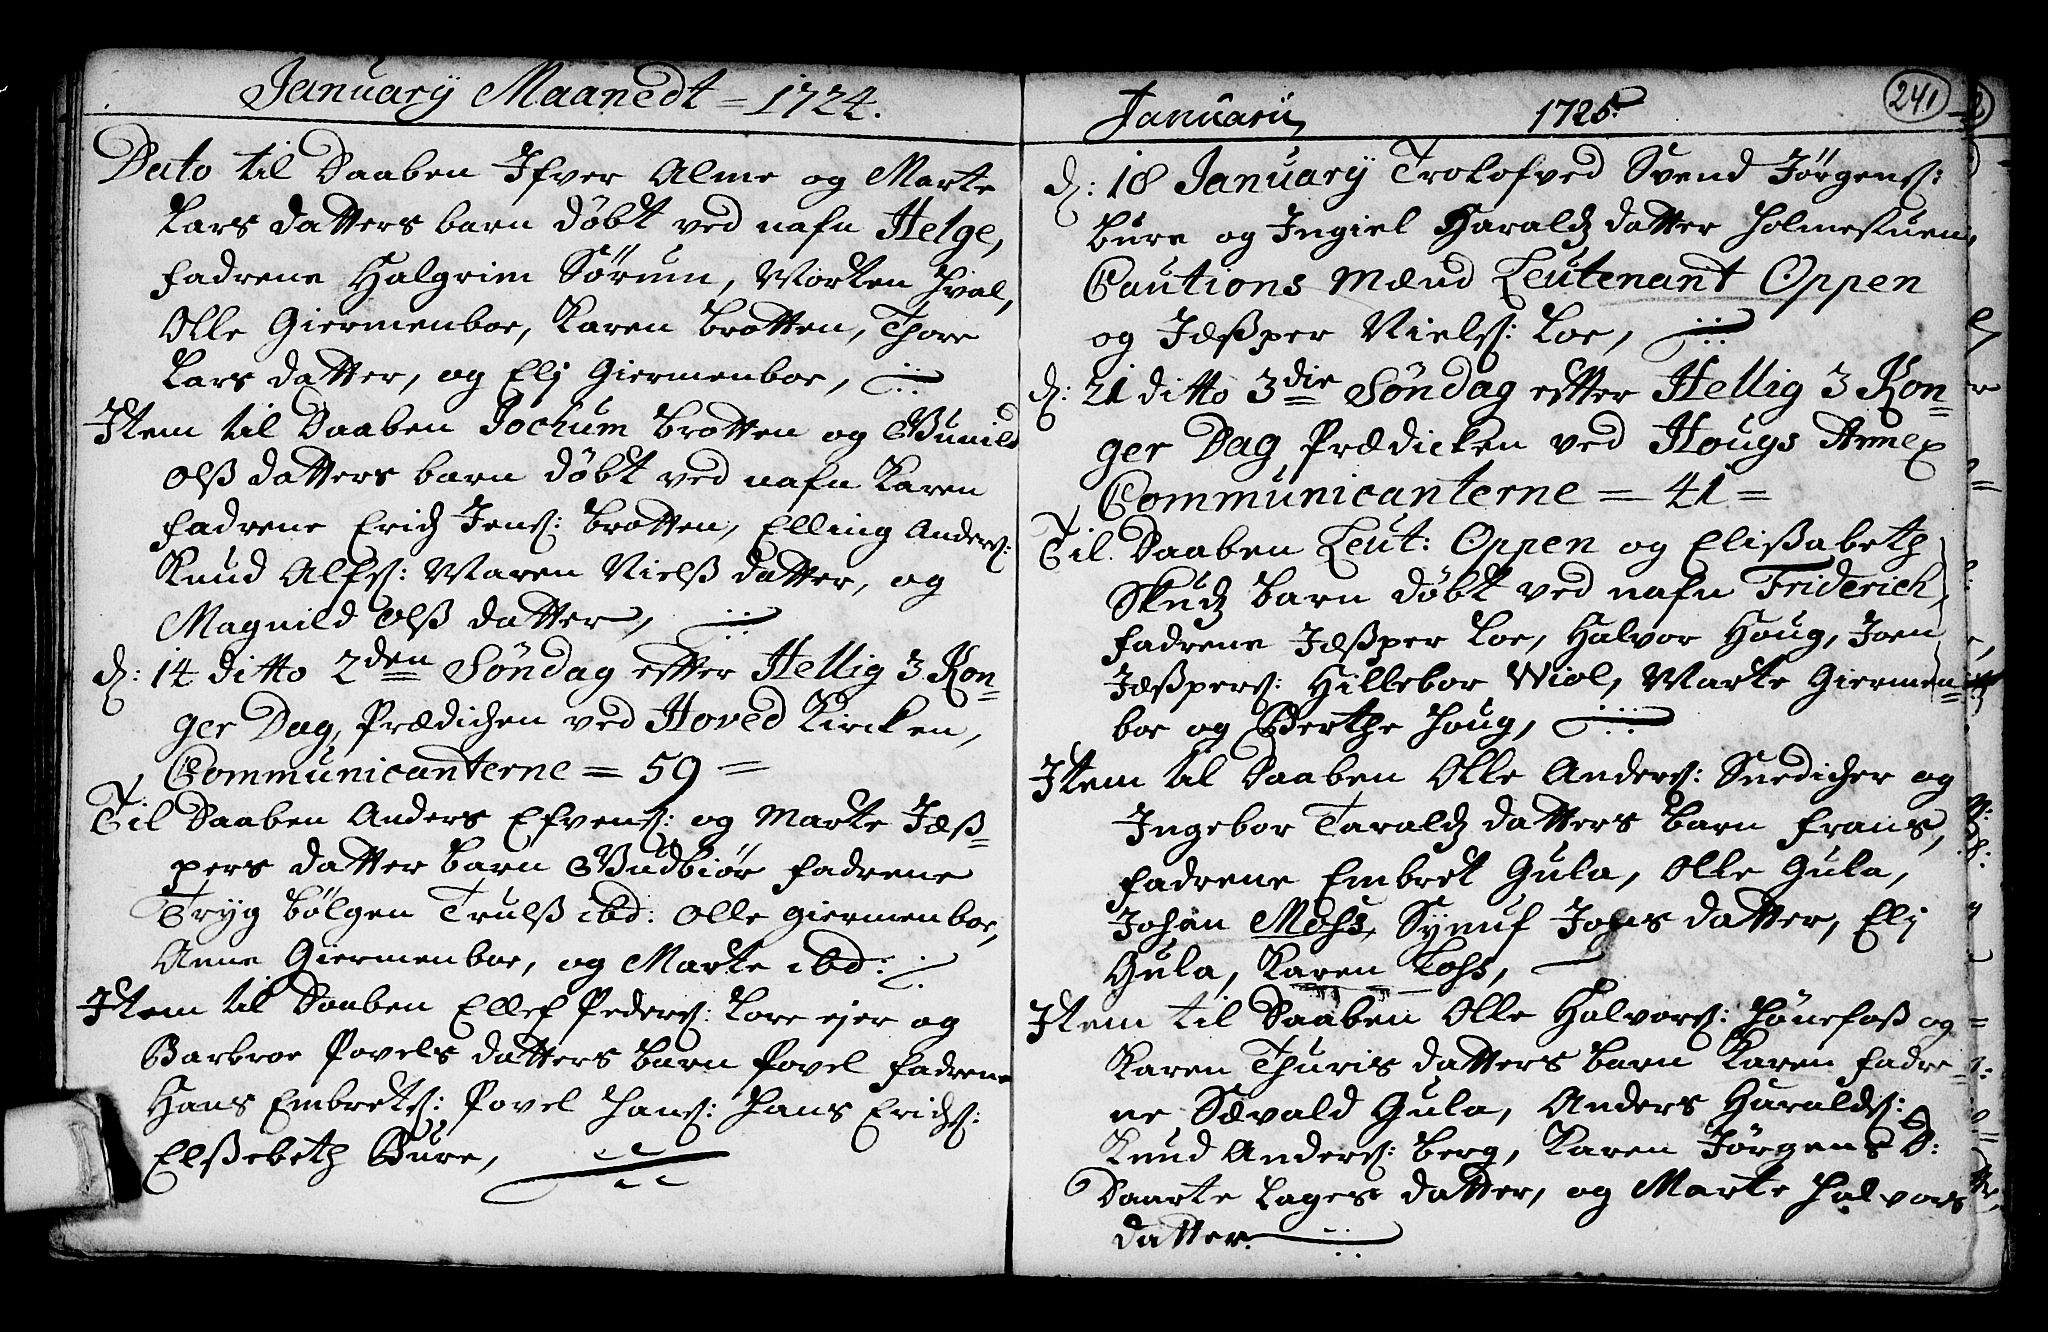 Januarÿ Maanedt = 1724.
Dato til Daaben Ifver Alme og Marte
Lars datters barn døbt ved nafn Helge,
fadrene Halgrim Sørum, Morten Hval,
Olle Giermenboe, Karen Bratten, Thore
Lars datter, og Eli Giermenboe,
Item til Daaben Jochum Bratten og Gunild
Olß datters barn døbt ved nafn Karen
fadrene Erich Jens: Bratten, Elling Anders:
Knud Alfs: Maren Nielß datter, og
Magnild Olß datter,
d: 14 ditto 2den Søndag efter Hellig 3 Kon=
ger Dag, Prædichen ved Hoved Kircken,
Communicanterne = 59 =
Til Daaben Anders Efvens: og Marte Jæß=
pers datter barn Gudbiør fadrene
Tryg Bølgen Trulß ibd: Olle Giermenboe,
Anne Giermenboe, og Marte ibd:
Item til Daaben Ellef Peders: Lore ejer og
Barbroe Povels datters barn Povel fadrene
Hans Embrets: Povel Hans: Hans Erichs:
Elßebeth Bure,
Januarii 1725.
241
d: 18 Januarÿ Trolofved Svend Jørgens:
Bure og Ingiel Haralds datter Holmestuen,
Cautions Mænd Leutenant Oppen
og Jæßper Niels: Loe,
d: 21 ditto 3die Søndag efter Hellig 3 Kon=
ger Dag, Prædicken ved Hougs Annex
Communicanterne = 41 =
Til Daaben Leut: Oppen og Elißabeth
Skutz barn døbt ved nafn Friderich,
fadrene Jæßper Loe, Halvor Houg, Joen
Jæßpers: Hillebor Wiol, Marte Giermen=
boe og Berthe Houg,
Item til Daaben Olle Anders: Snedicher og
Ingebor Taralds datters barn Frans,
fadrene Embret Gula, Olle Gula,
Johan Mohs, Synuf Johs datter, Eli
Gula, Karen Loss,
Item til Daaben Olle Halvors: Hønefoß og
Karen Thuris datters barn Karen fadre=
ne Sævald Gula, Anders Haralds:
Knud Anders: Berg, Karen Jørgens D:
Daarte Lages datter, og Marte Halvors
datter.